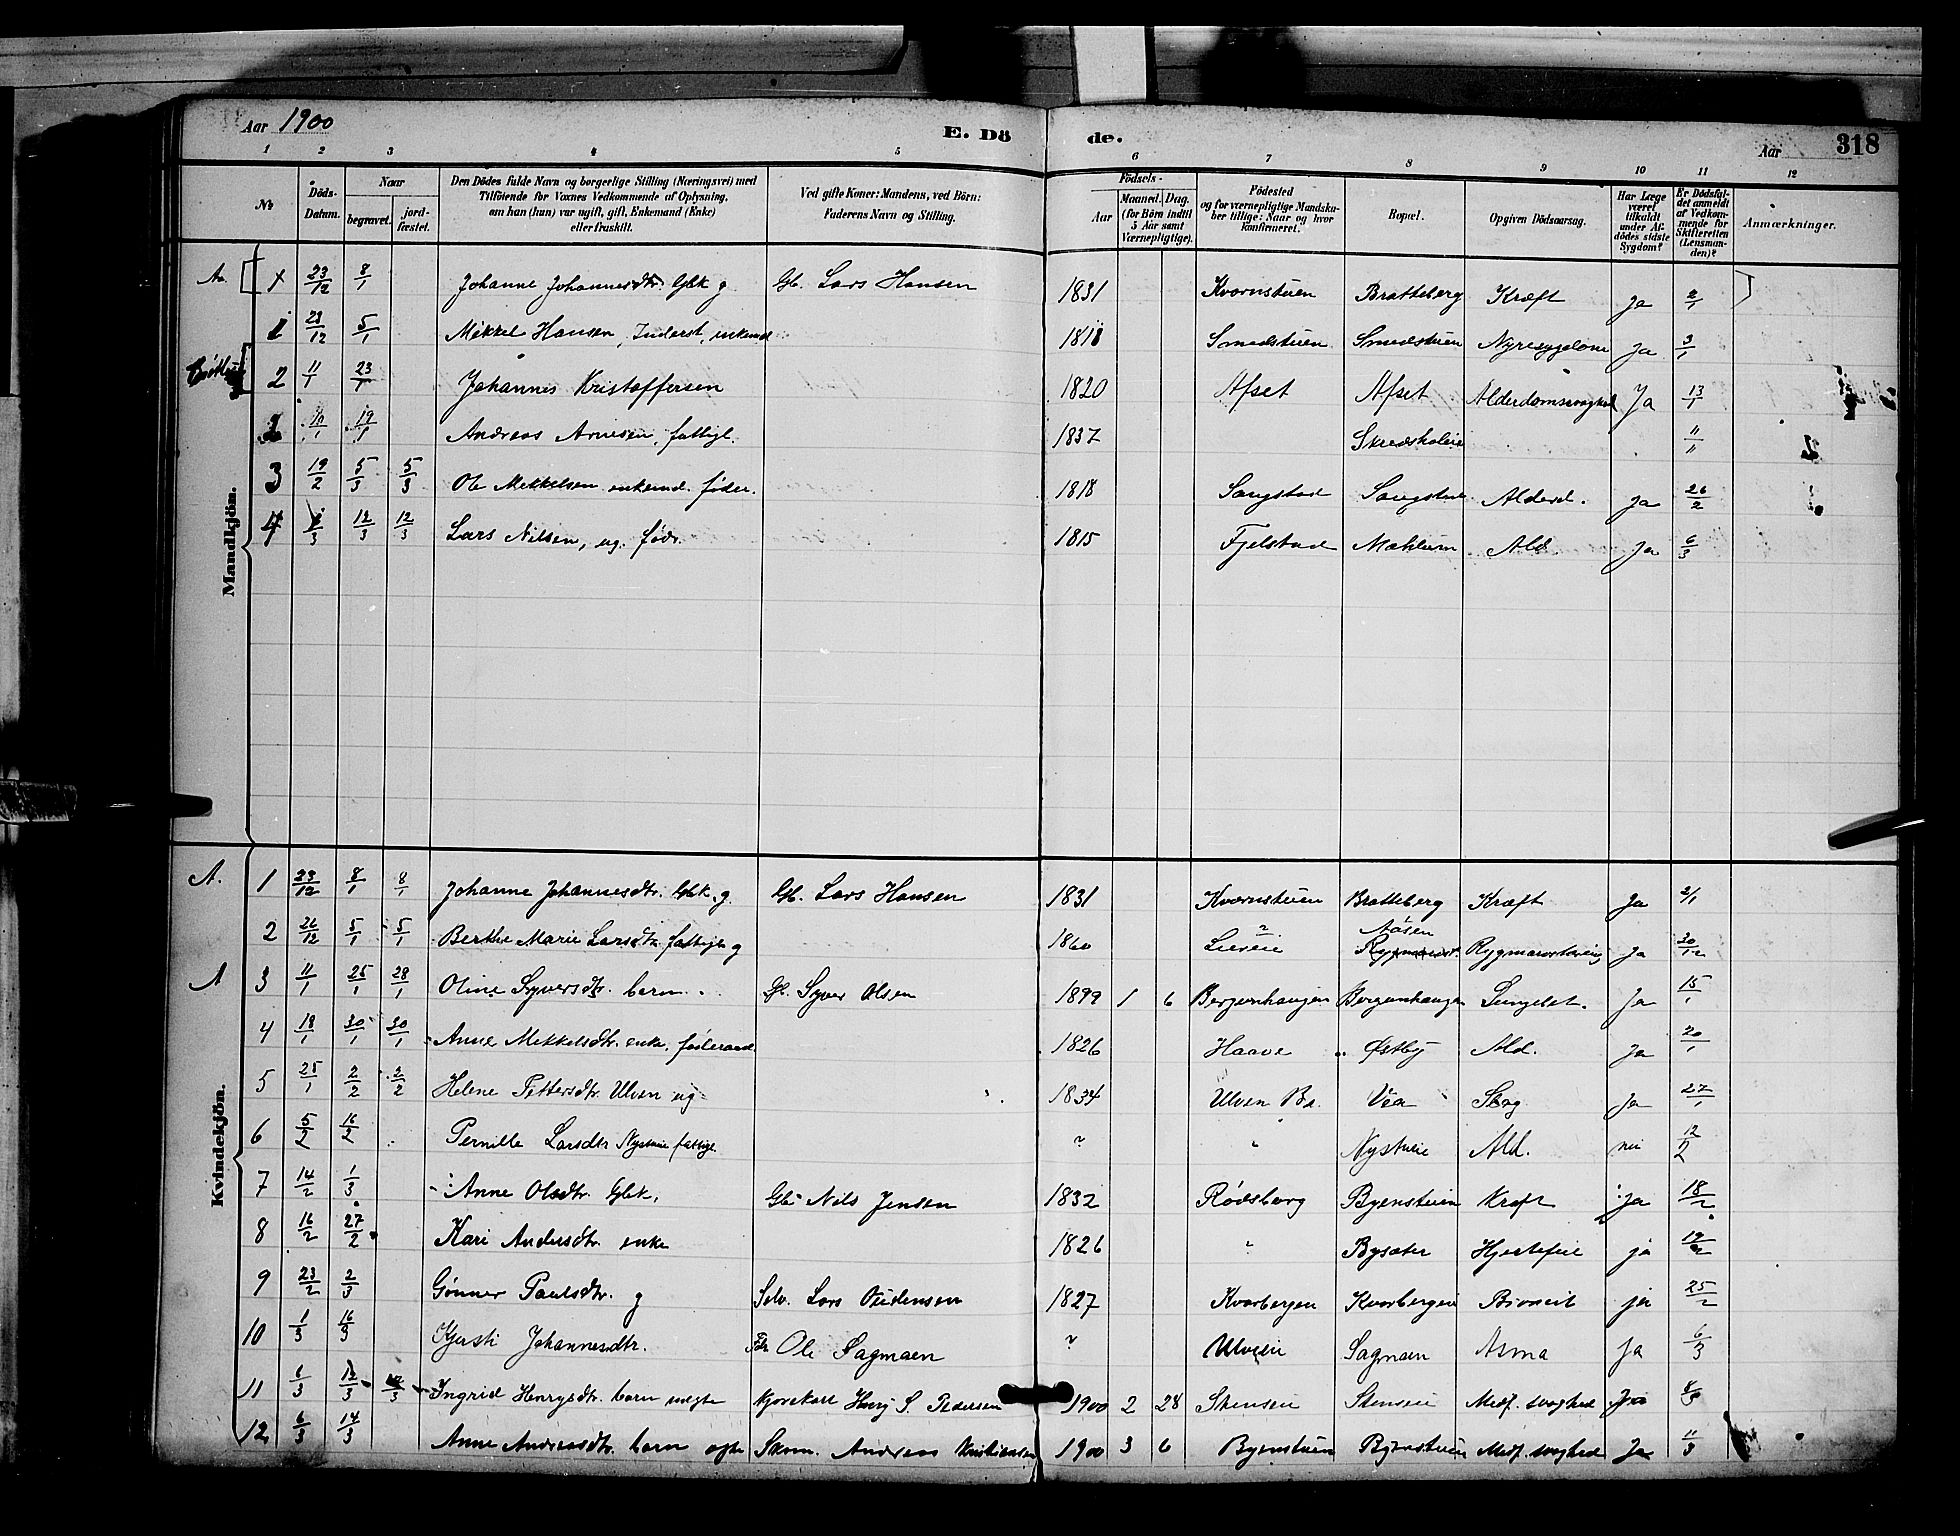 Aar 1900 E. Dö de. Aar 318
1 2 3 4 5 6 7 8 9 10 11 12
№ Döds-Datum. Naar begravet. jord-fæstet. Den Dödes fulde Navn og borgerlige Stilling (Næringsvei) med Tilföiende for Voxnes Vedkommende af Oplysning, om han (hun) var ugift, gift, Enkemand (Enke) eller fraskilt. Ved gifte Koner: Mandens, ved Börn: Faderens Navn og Stilling. Födsels- Aar Maaned. Dag. (for Börn indtil 5 Aar samt Værnepligtige). Födested og for værnepligtige Mandskaber tillige: Naar og hvor konfirmeret. Bopæl. Opgiven Dödsaarsag. Har Læge været tilkaldt under Afdödes sidste Sygdom? Er Dödsfaldet anmeldt af Vedkommende for Skifteretten (Lensmanden)? Anmærkninger.
Mandkjön.
A. 23/12 8/1 Johanne Johannesdtr. Gbk g. Gb. Lars Hansen 1831 Kvornstuen Bratteberg Kræft Ja 2/1
1 29/12 5/1 Mikkel Hansen, Inderst, enkemd 1811 Smedstuen Smedstuen Nyresygdom Ja 3/1
2 11/1 23/1 Johannes Kristoffersen 1820 Afset Afset Ja 13/1
19/1 Andreas Arnesen, fattigl. 1837
3 19/2 5/3 5/3 Ole Mikkelsen enkemd. føder. 1818 Sangstad Alderd. Ja 26/2
4 12/3 12/3 Lars Nilsen, ug. føder. 1815 Fjelstad Mæhlum Ald Ja 6/3
Kvindekjön.
A. 1 23/12 8/1 8/1 Johanne Johannesdtr. Gbk. g. Gb. Lars Hansen 1831 Kvornstuen Bratteberg Kræft Ja 2/1
2 26/12 5/1 5/1 Berthe Marie Larsdtr. fattigl g 1860 Aasen Ja 30/12
A 3 11/1 25/1 28/1 Oline Syversdtr. barn. Syver Olsen 1899 1 6 Bergenhaugen Bergenhaugen Ja 15/1
4 18/1 30/1 30/1 Anne Mikkelsdtr. enke, føderaad 1826 Haave Østby Ald. Ja 20/1
5 25/1 2/2 2/2 Helene Pettersdtr. Ulven ug. 1834 Ulven Slag Ja 27/1
6 5/2 16/2 Pernille Larsdtr Nystuie fattigl. ? " Nystuie Ald. nei 12/2
7 14/2 1/3 Anne Olsdtr. Gbk. Gb. Nils Jensen 1832 Rødsberg Byenstuen Kræft ja 18/2
8 16/2 27/2 Kari Andersdtr. enke 1826 " Bysæter Hjertefeil ja 19/2
9 23/2 2/3 Gønner Paulsdtr. g Selv. Lars Audensen 1827 Kvarbergen ja 25/2
10 1/3 16/3 Kjersti Johannesdtr. Ole Sagmoen ? Ulveie Sagmoen Asma Ja 6/3
11 6/3 12/3 Ingrid Henrysdtr. barn uægte Kjørekarl Henry S. Pedersen 1900 2 28 Stenseie Stenseie Medf. svaghed Ja 8/3
12 6/3 14/3 Anne Andreasdtr. barn ægte Skom. Andreas Kristiansen 1900 3 6 Byenstuen Byenstuen Medf. svaghed Ja 11/3